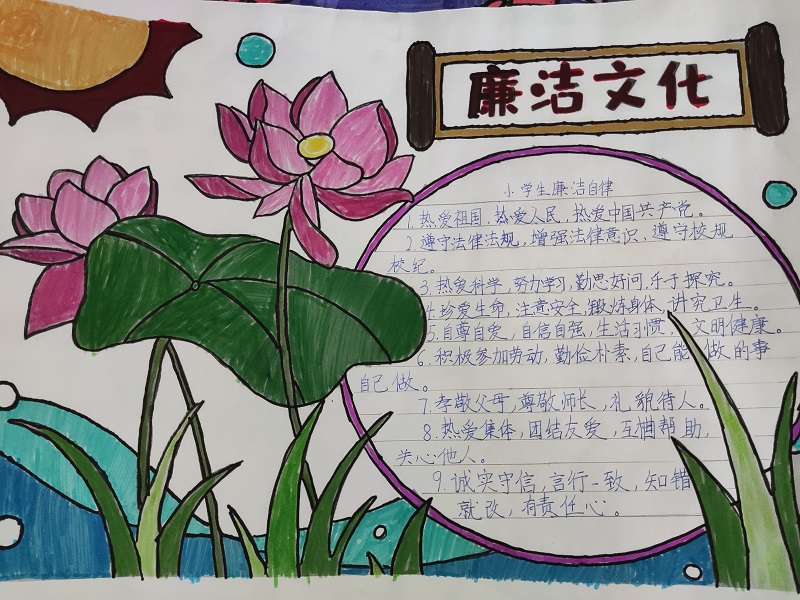 廉洁文化
小学生廉洁自律
1.热爱祖国,热爱人民,热爱中国共产党。
2.遵守法律法规,增强法律意识,遵守校规
校纪。
3.热爱科学,努力学习,勤思好问,乐于探究。
4.珍爱生命,注意安全,锻炼身体,讲究卫生。
5.自尊自爱,自信自强,生活习惯,文明健康。
6.积极参加劳动,勤俭朴素,自己能做的事
自己做。
7.孝敬父母,尊敬师长,礼貌待人。
8.热爱集体,团结友爱,互相帮助,
关心他人。
9.诚实守信,言行一致,知错
就改,有责任心。